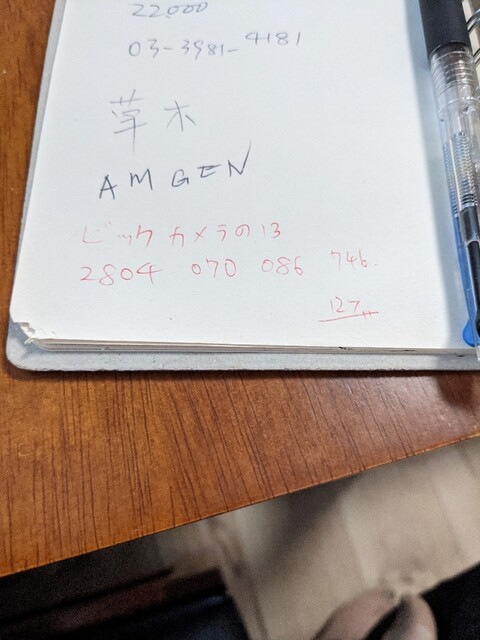 22000
03-3981-4181
草木
AMGEN
ビックカメラの13
2804 070 086 746.
127